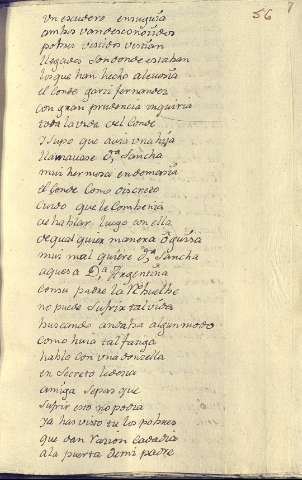 56
Un escudero en su guia
ambos van desconoçidos
pobres vestidos vestian
llegados son donde estaban
los que han hecho alevosia
el Conde garzi fernandez
con gran prudencia inquiria
toda la vida del Conde
y supo que avia una hija
llamavase dª Sancha
muy hermosa en demasia
el Conde como discreto
cuido que le combenia
de hablar luego con ella
de qual quier manera o guisa
muy mal quiere dª Sancha
aquesa Dª Argentina
con su padre la rebuelbe
no puede sufrir tal vida
buscando andaba algun modo
como huia tal fatiga
hablo con una donzella
en secreto le dezia
amiga sepas que
sufrir esto no podia
ya has visto tu los pobres
que dan racion cada dia
a la puerta de mi padre